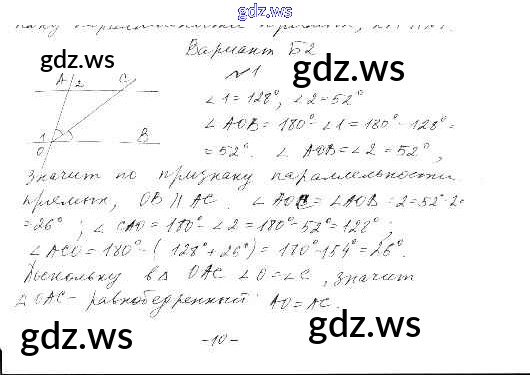 gdz.ws
Вариант Б2
gdz.ws
gdz.ws
№1
A 2 C
∠1 = 128°, ∠2 = 52°
∠AOB = 180° - ∠1 = 180° - 128° =
1 B
= 52°. ∠AOB = ∠2 = 52°,
O
значит по признаку параллельности
прямых, OB || AC. ∠AOC = ∠AOB : 2 = 52° : 2 =
= 26°; ∠CAO = 180° - ∠2 = 180° - 52° = 128°;
∠ACO = 180° - (128° + 26°) = 180° - 154° = 26°.
Поскольку в Δ OAC ∠O = ∠C, значит
ΔOAC - равнобедренный AO = AC.
gdz.ws
-10-
gdz.ws